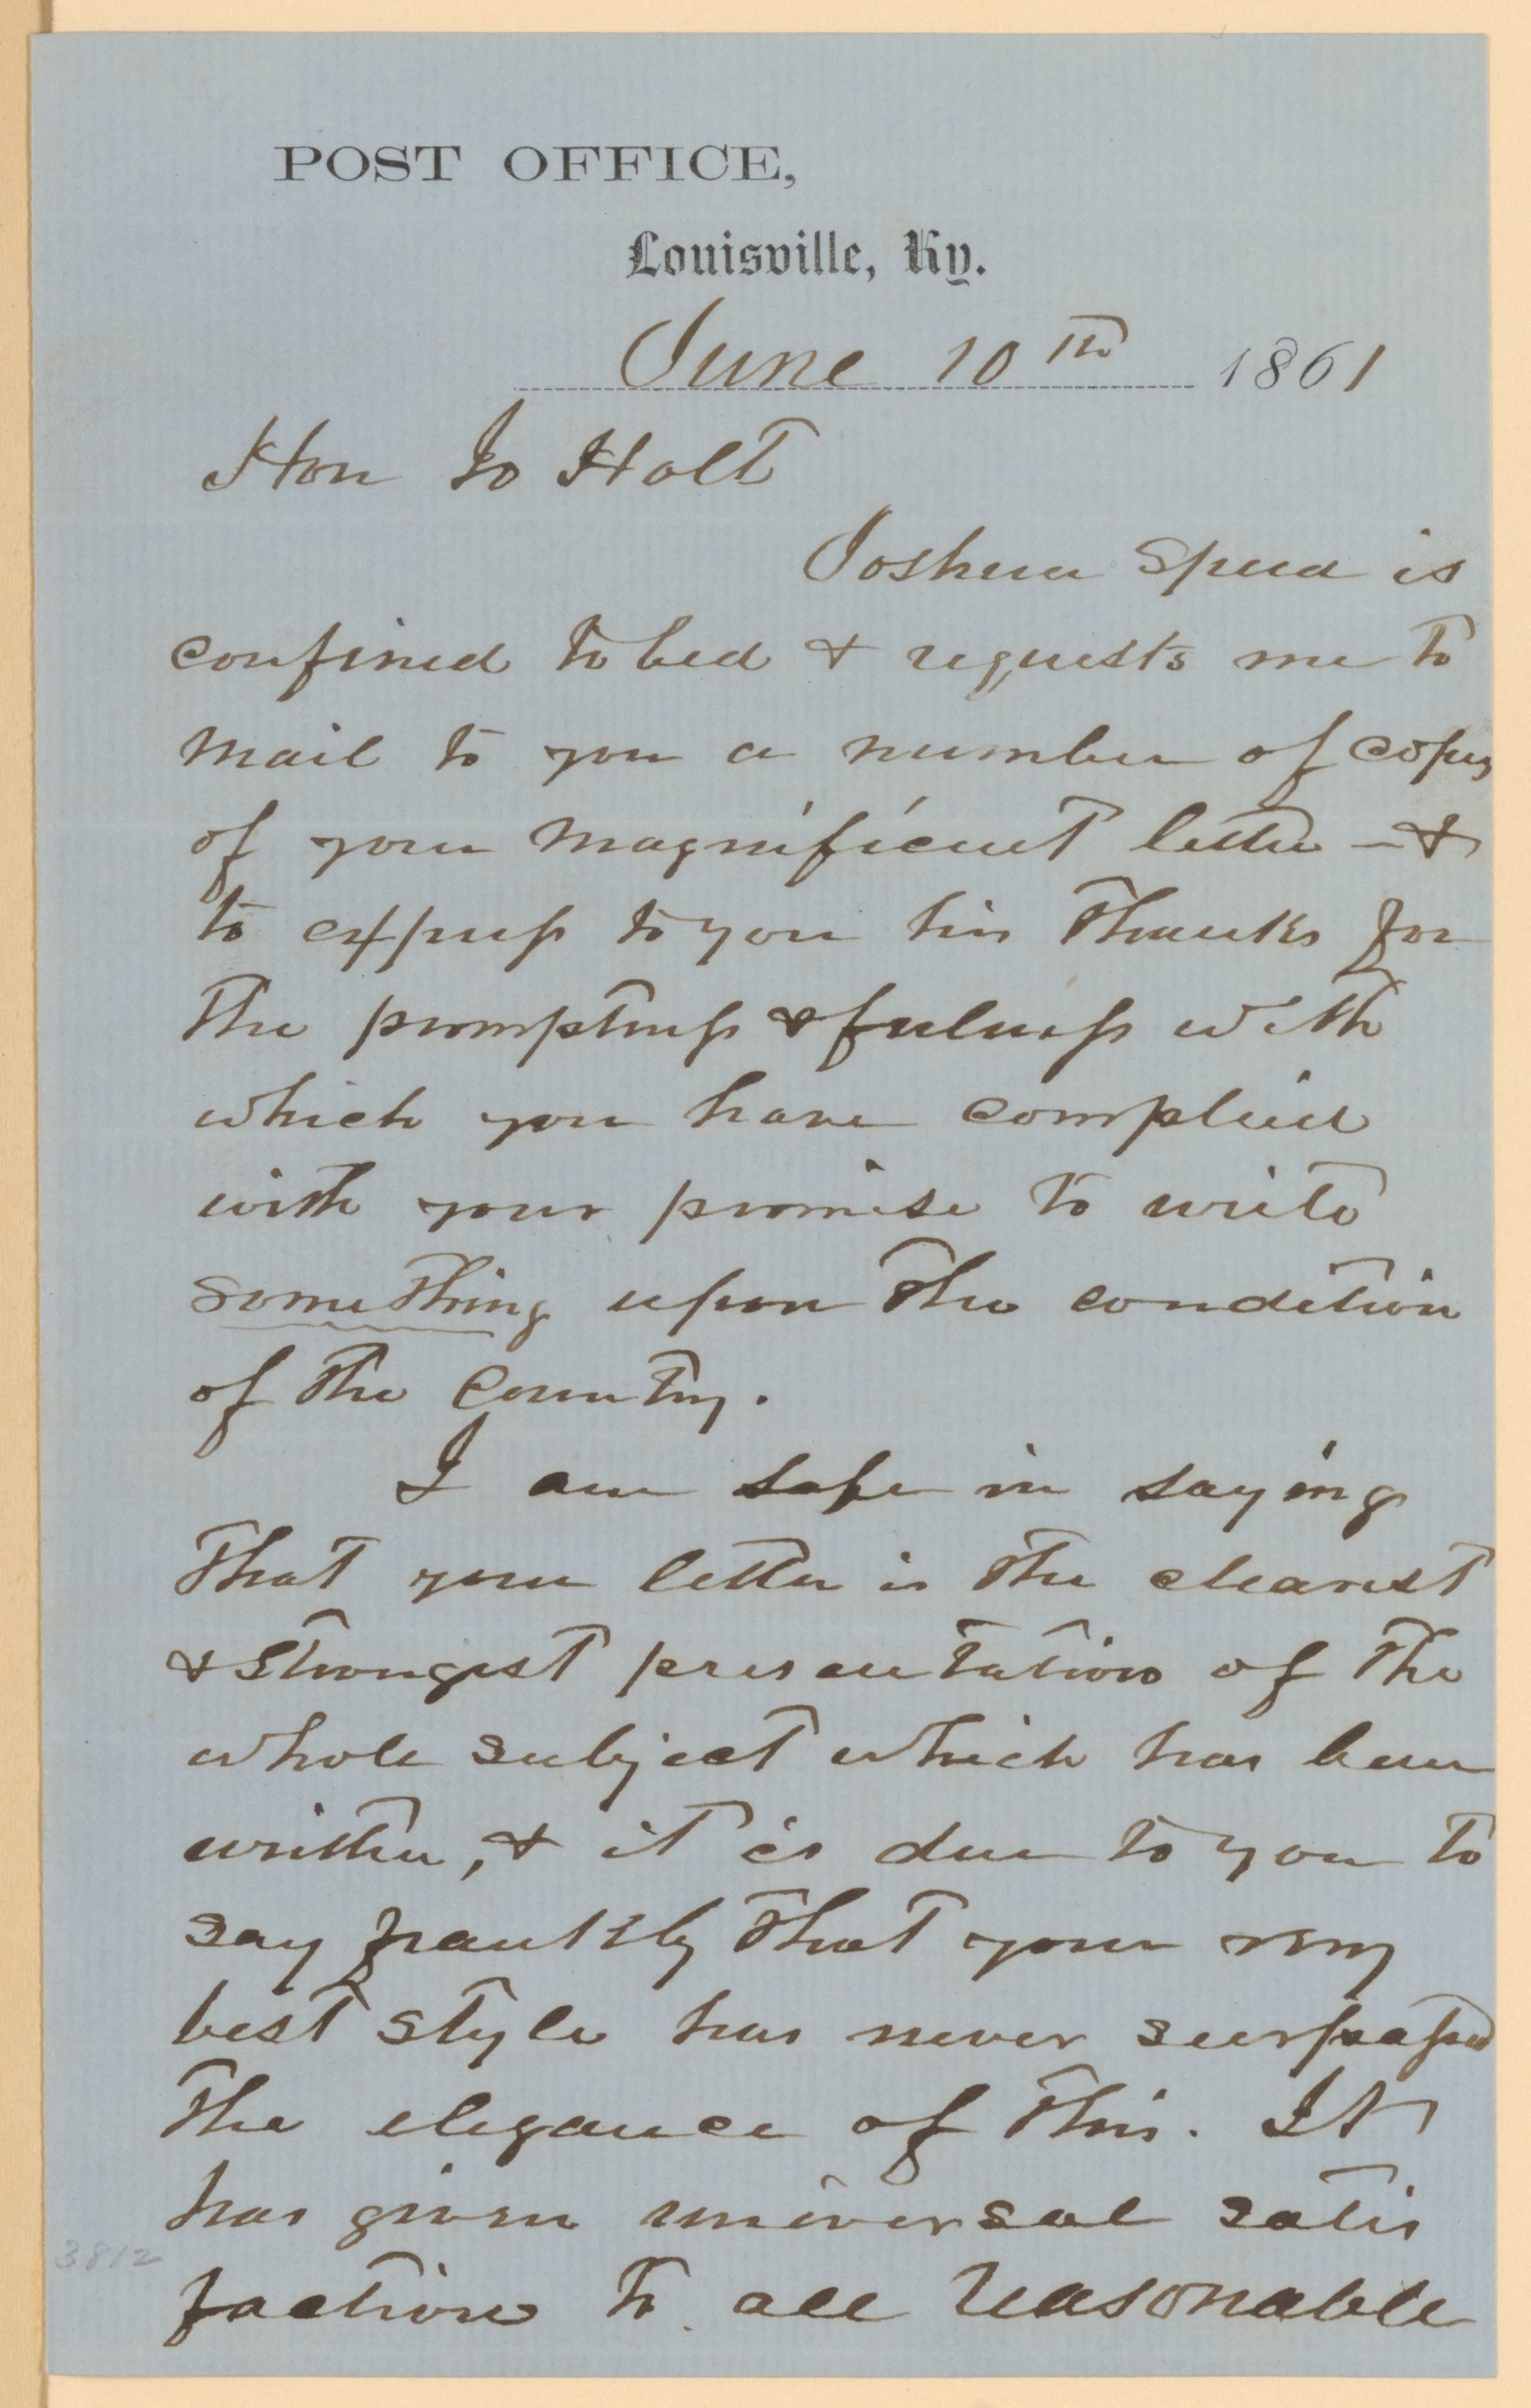 POST OFFICE,
Louisville, Ky.
June 10th 1861
Hon Jo Holt
Joshua Speed is
confined to bed & requests me to
mail to you a number of copies
of your magnificent letter – &
to express to you his thanks for
the promptness & fulness with
which you have complied
with your promise to write
something upon the condition
of the Country.
I am safe in saying
that your letter is the clearest
& strongest presentation of the
whole subject which has been
written, & it is due to you to
say frankly that your very
best style has never surpassed
the elegance of this. It
has given universal satis
faction to all reasonable
3812